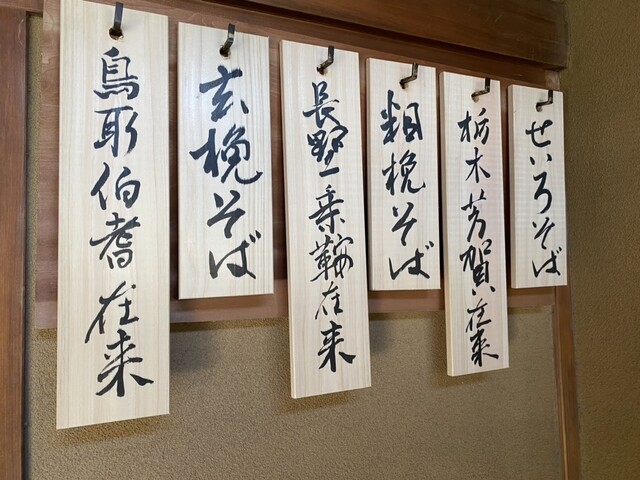 せいろそば
栃木芳賀在来
粗挽そば
長野乗鞍在来
玄挽そば
鳥取伯耆在来